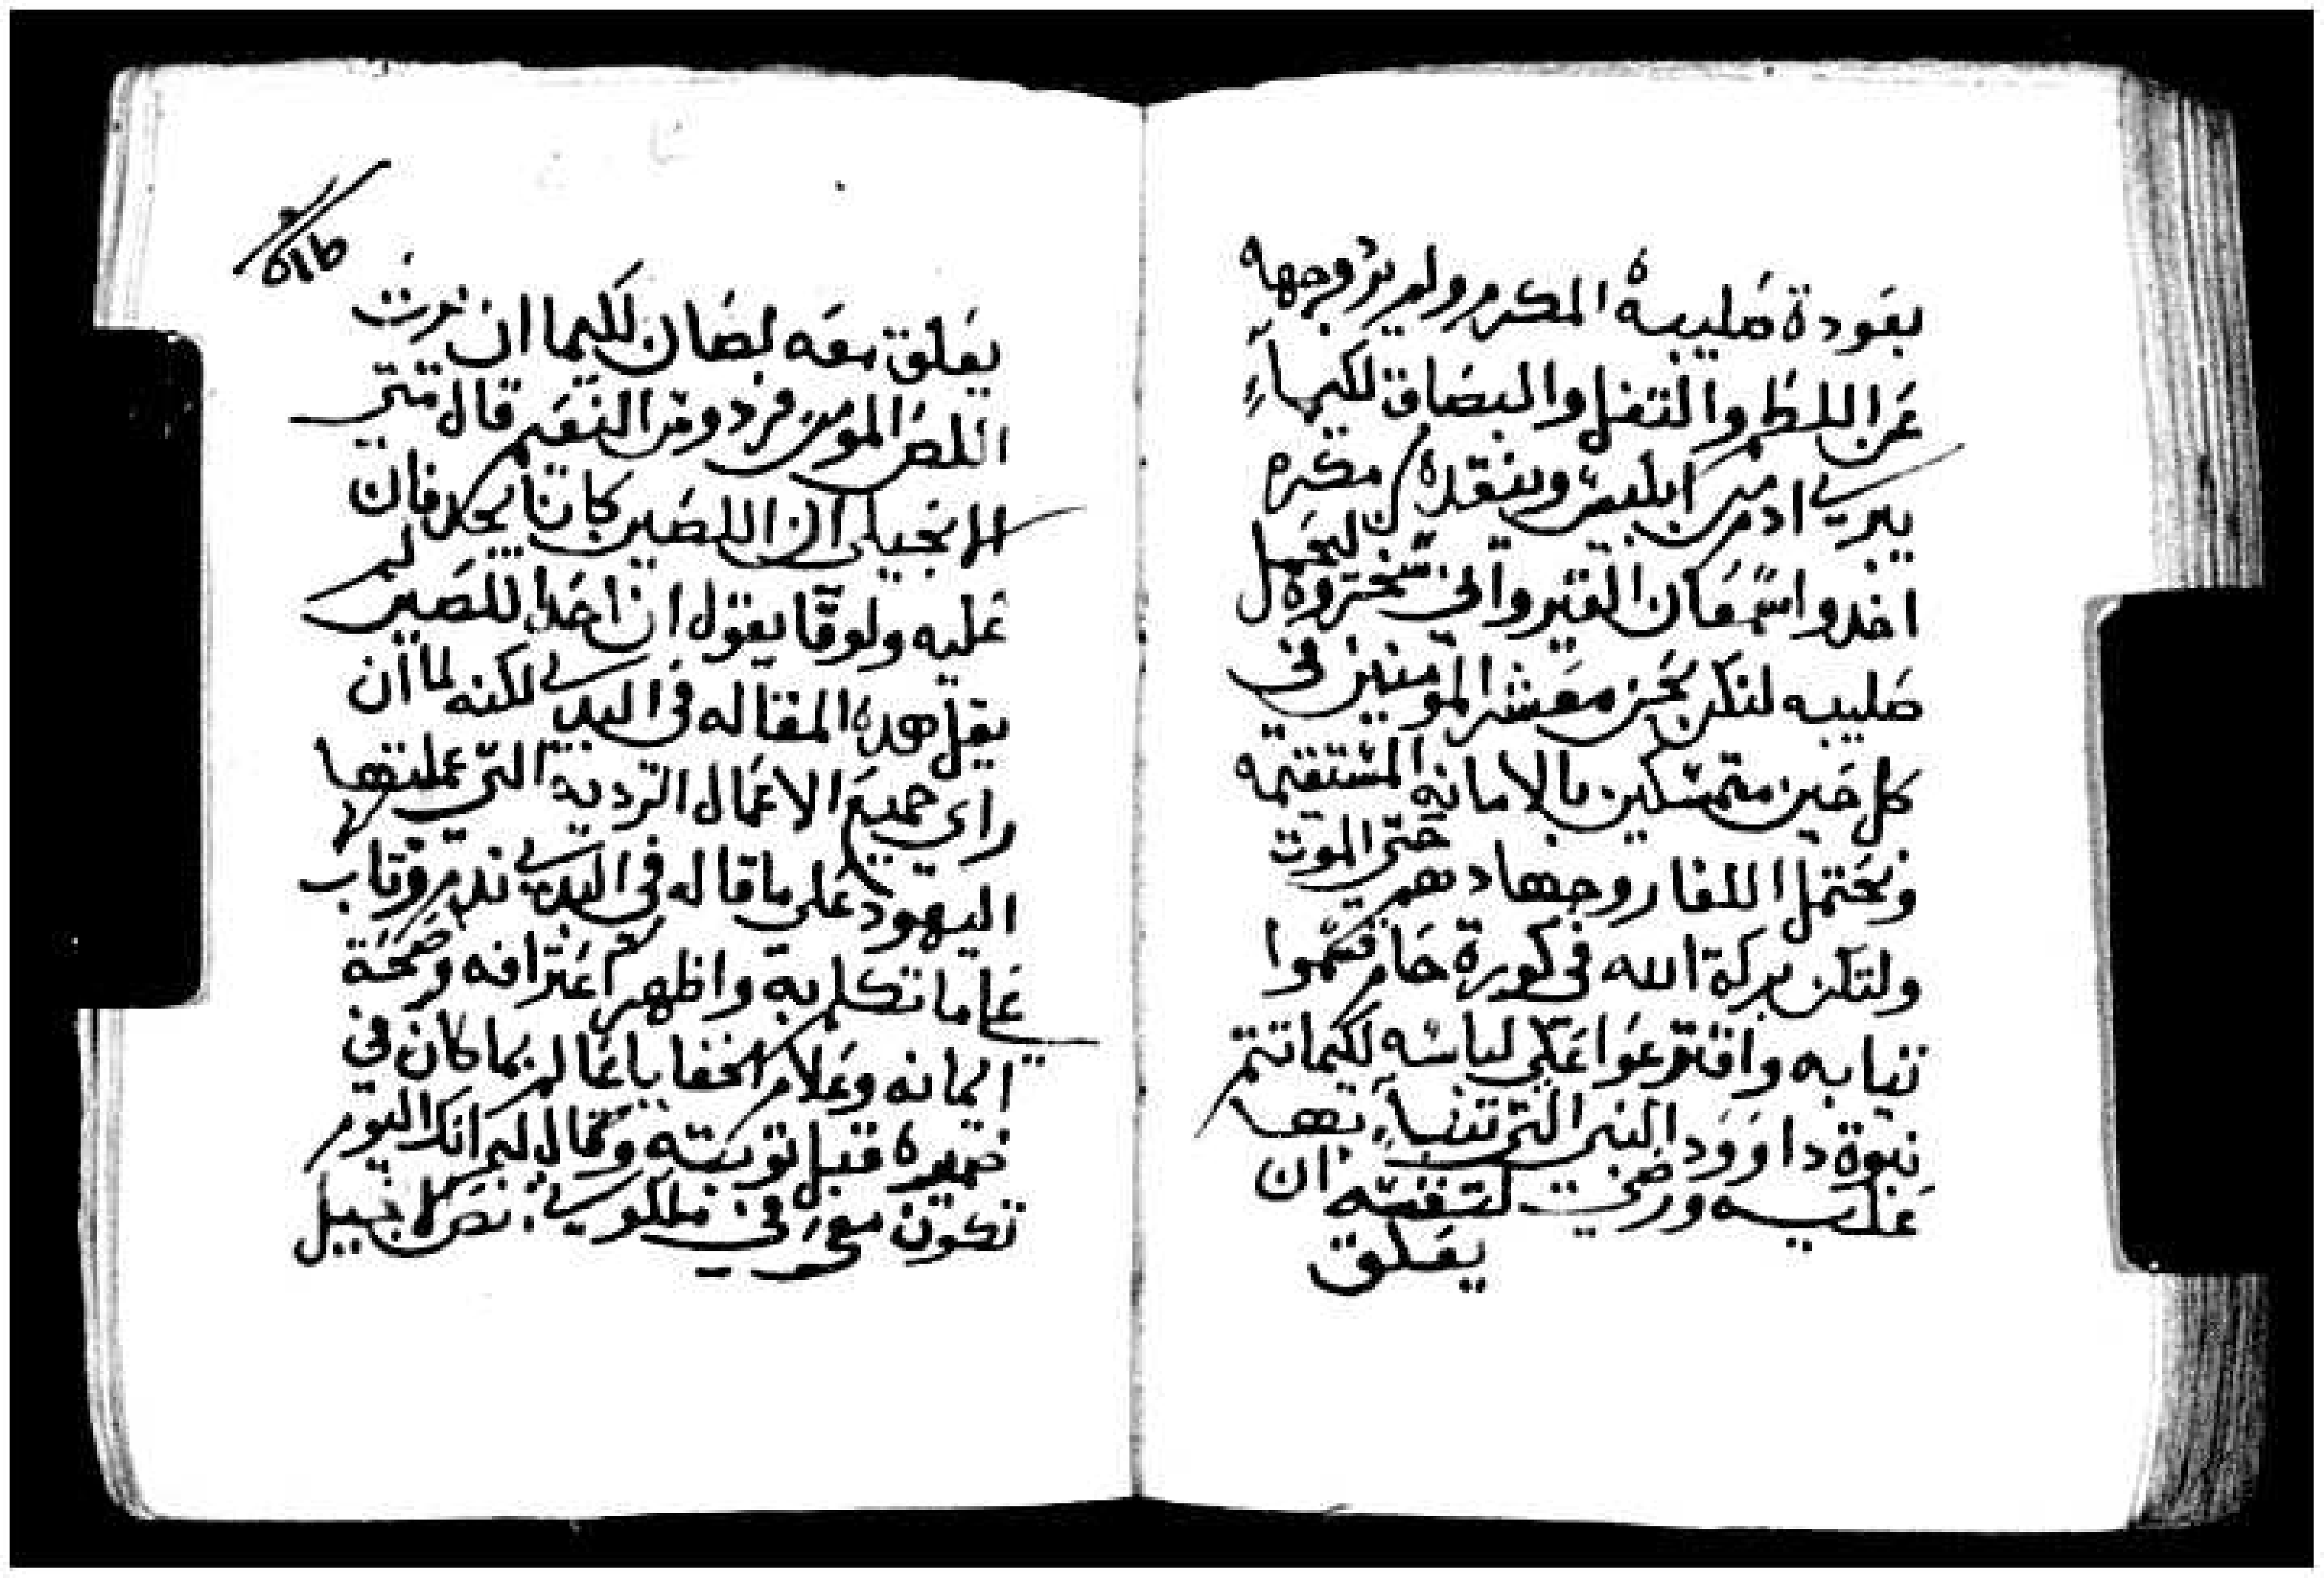 بعودة صليبه المكرم ولم يرد وجهه
عن اللطم والتفل والبصاق لكيماء
يبري ادم من ابليس وينقده مكرم
اخدوا سمعان القيرواني سخروه ليحمل
صليبه لنكن نحن معشر المومنين في
كل حين متمسكين بالامانه المستقيمه
ونحتمل اللقا روجهادهم حتى الموت
ولتكن بركة الله في كورة حام قسموا
تيابه واقترعوا على لباسه لكيما تتم
نبوة داوود النبي التي تنباء تها
عليه ورضي لتفته ان
يعلق
يعلق معه لصان لكيما ان يرت
اللص المومن فردوس النعيم قال متى
الانجيلي ان اللصين كانا يجدفان
عليه ولوقا يقول ان احد اللصين لم
يقل هده المقاله في البدي لكنه لما ان
راى جميع الاعمال الرديه التي عملتها
اليهود على ما قاله في البدي ندم وتاب
عاما تكلم به واظهر اعترافه وصحة
ايمانه وعلام الخفايا عالم بما كان في
ضميره قبل توبته وقال له انك اليوم
تكون معي في ملكوتي نص انجيل